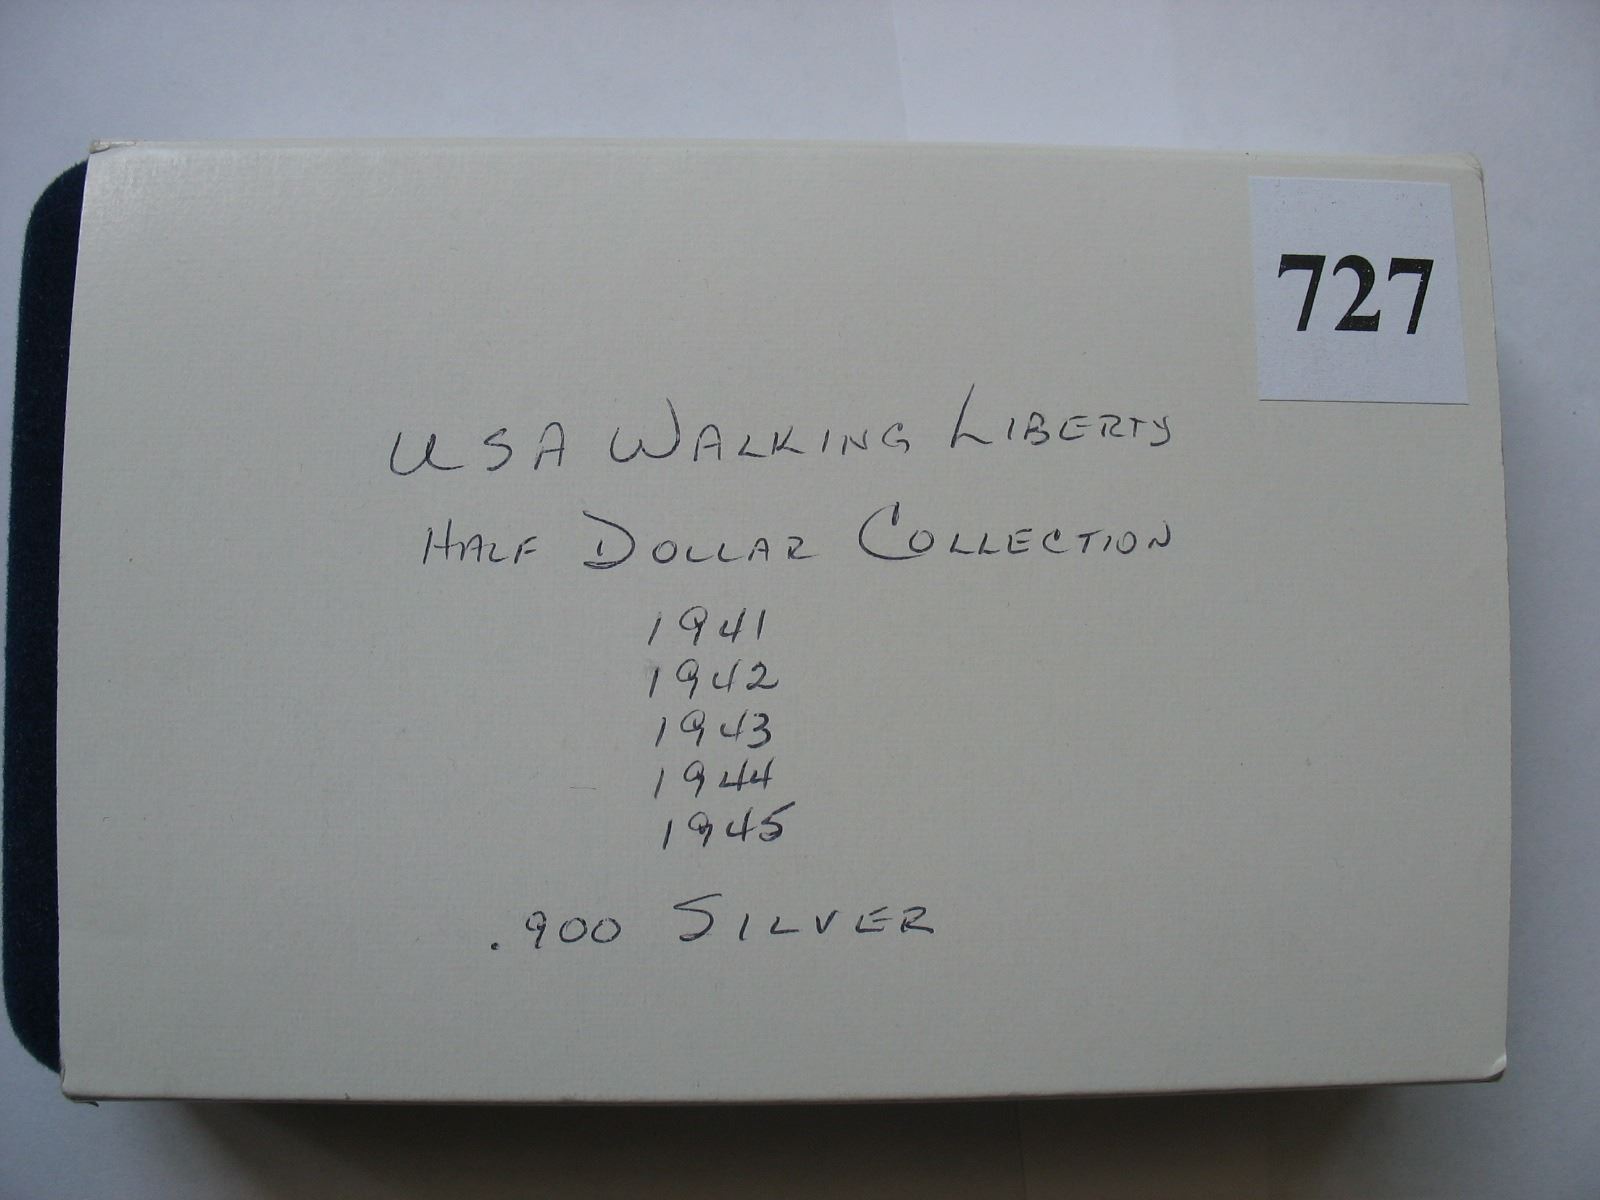 727
USA WALKING LIBERTY
HALF DOLLAR COLLECTION
1941
1942
1943
1944
1945
.900 SILVER